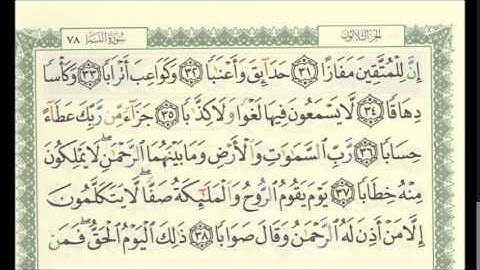 سُورَةُ النَّبَإِ ٧٨
الجُزْءُ الثَّلَاثُونَ
إِنَّ لِلْمُتَّقِينَ مَفَازًا ٣١ حَدَآئِقَ وَأَعْنَٰبًا ٣٢ وَكَوَاعِبَ أَتْرَابًا ٣٣ وَكَأْسًا
دِهَاقًا ٣٤ لَّا يَسْمَعُونَ فِيهَا لَغْوًا وَلَا كِذَّٰبًا ٣٥ جَزَآءً مِّن رَّبِّكَ عَطَآءً
حِسَابًا ٣٦ رَّبِّ ٱلسَّمَٰوَٰتِ وَٱلْأَرْضِ وَمَا بَيْنَهُمَا ٱلرَّحْمَٰنِ ۖ لَا يَمْلِكُونَ
مِنْهُ خِطَابًا ٣٧ يَوْمَ يَقُومُ ٱلرُّوحُ وَٱلْمَلَٰٓئِكَةُ صَفًّا ۖ لَّا يَتَكَلَّمُونَ
إِلَّا مَنْ أَذِنَ لَهُ ٱلرَّحْمَٰنُ وَقَالَ صَوَابًا ٣٨ ذَٰلِكَ ٱلْيَوْمُ ٱلْحَقُّ ۖ فَمَن